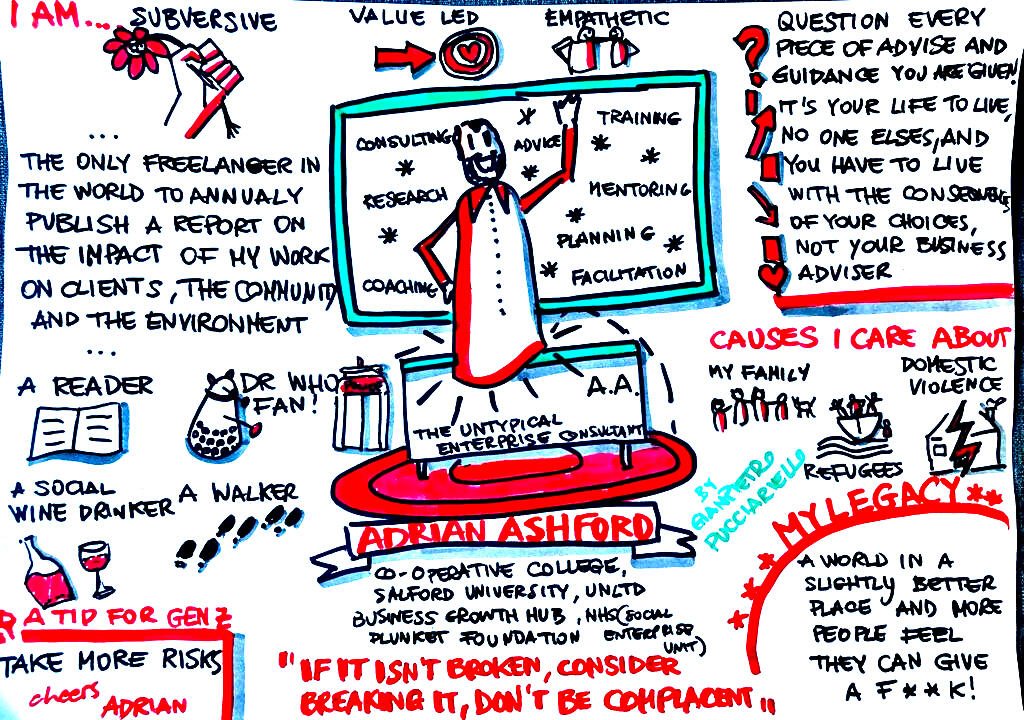 I AM...
SUBVERSIVE
...
THE ONLY FREELANCER IN
THE WORLD TO ANNUALY
PUBLISH A REPORT ON
THE IMPACT OF MY WORK
ON CLIENTS, THE COMMUNITY
AND THE ENVIRONMENT
...
A READER
DR WHO
FAN!
A SOCIAL
WINE DRINKER
A WALKER
A TIP FOR GEN Z
TAKE MORE RISKS
cheers
ADRIAN
VALUE LED
EMPATHETIC
CONSULTING
ADVICE
TRAINING
RESEARCH
MENTORING
PLANNING
COACHING
FACILITATION
A.A.
THE UNTYPICAL
ENTERPRISE CONSULTANT
ADRIAN ASHFORD
CO-OPERATIVE COLLEGE,
SALFORD UNIVERSITY, UNLTD
BUSINESS GROWTH HUB, NHS (SOCIAL
PLUNKET FOUNDATION ENTERPRISE
UNIT)
"IF IT ISN'T BROKEN, CONSIDER
BREAKING IT, DON'T BE COMPLACENT"
QUESTION EVERY
PIECE OF ADVISE AND
GUIDANCE YOU ARE GIVEN!
IT'S YOUR LIFE TO LIVE,
NO ONE ELSES, AND
YOU HAVE TO LIVE
WITH THE CONSEQUENCES
OF YOUR CHOICES,
NOT YOUR BUSINESS
ADVISER
CAUSES I CARE ABOUT
MY FAMILY
DOMESTIC
VIOLENCE
REFUGEES
BY
GIANPIETRO
PUCCIARIELLO
MY LEGACY
A WORLD IN A
SLIGHTLY BETTER
PLACE AND MORE
PEOPLE FEEL
THEY CAN GIVE
A F**K!